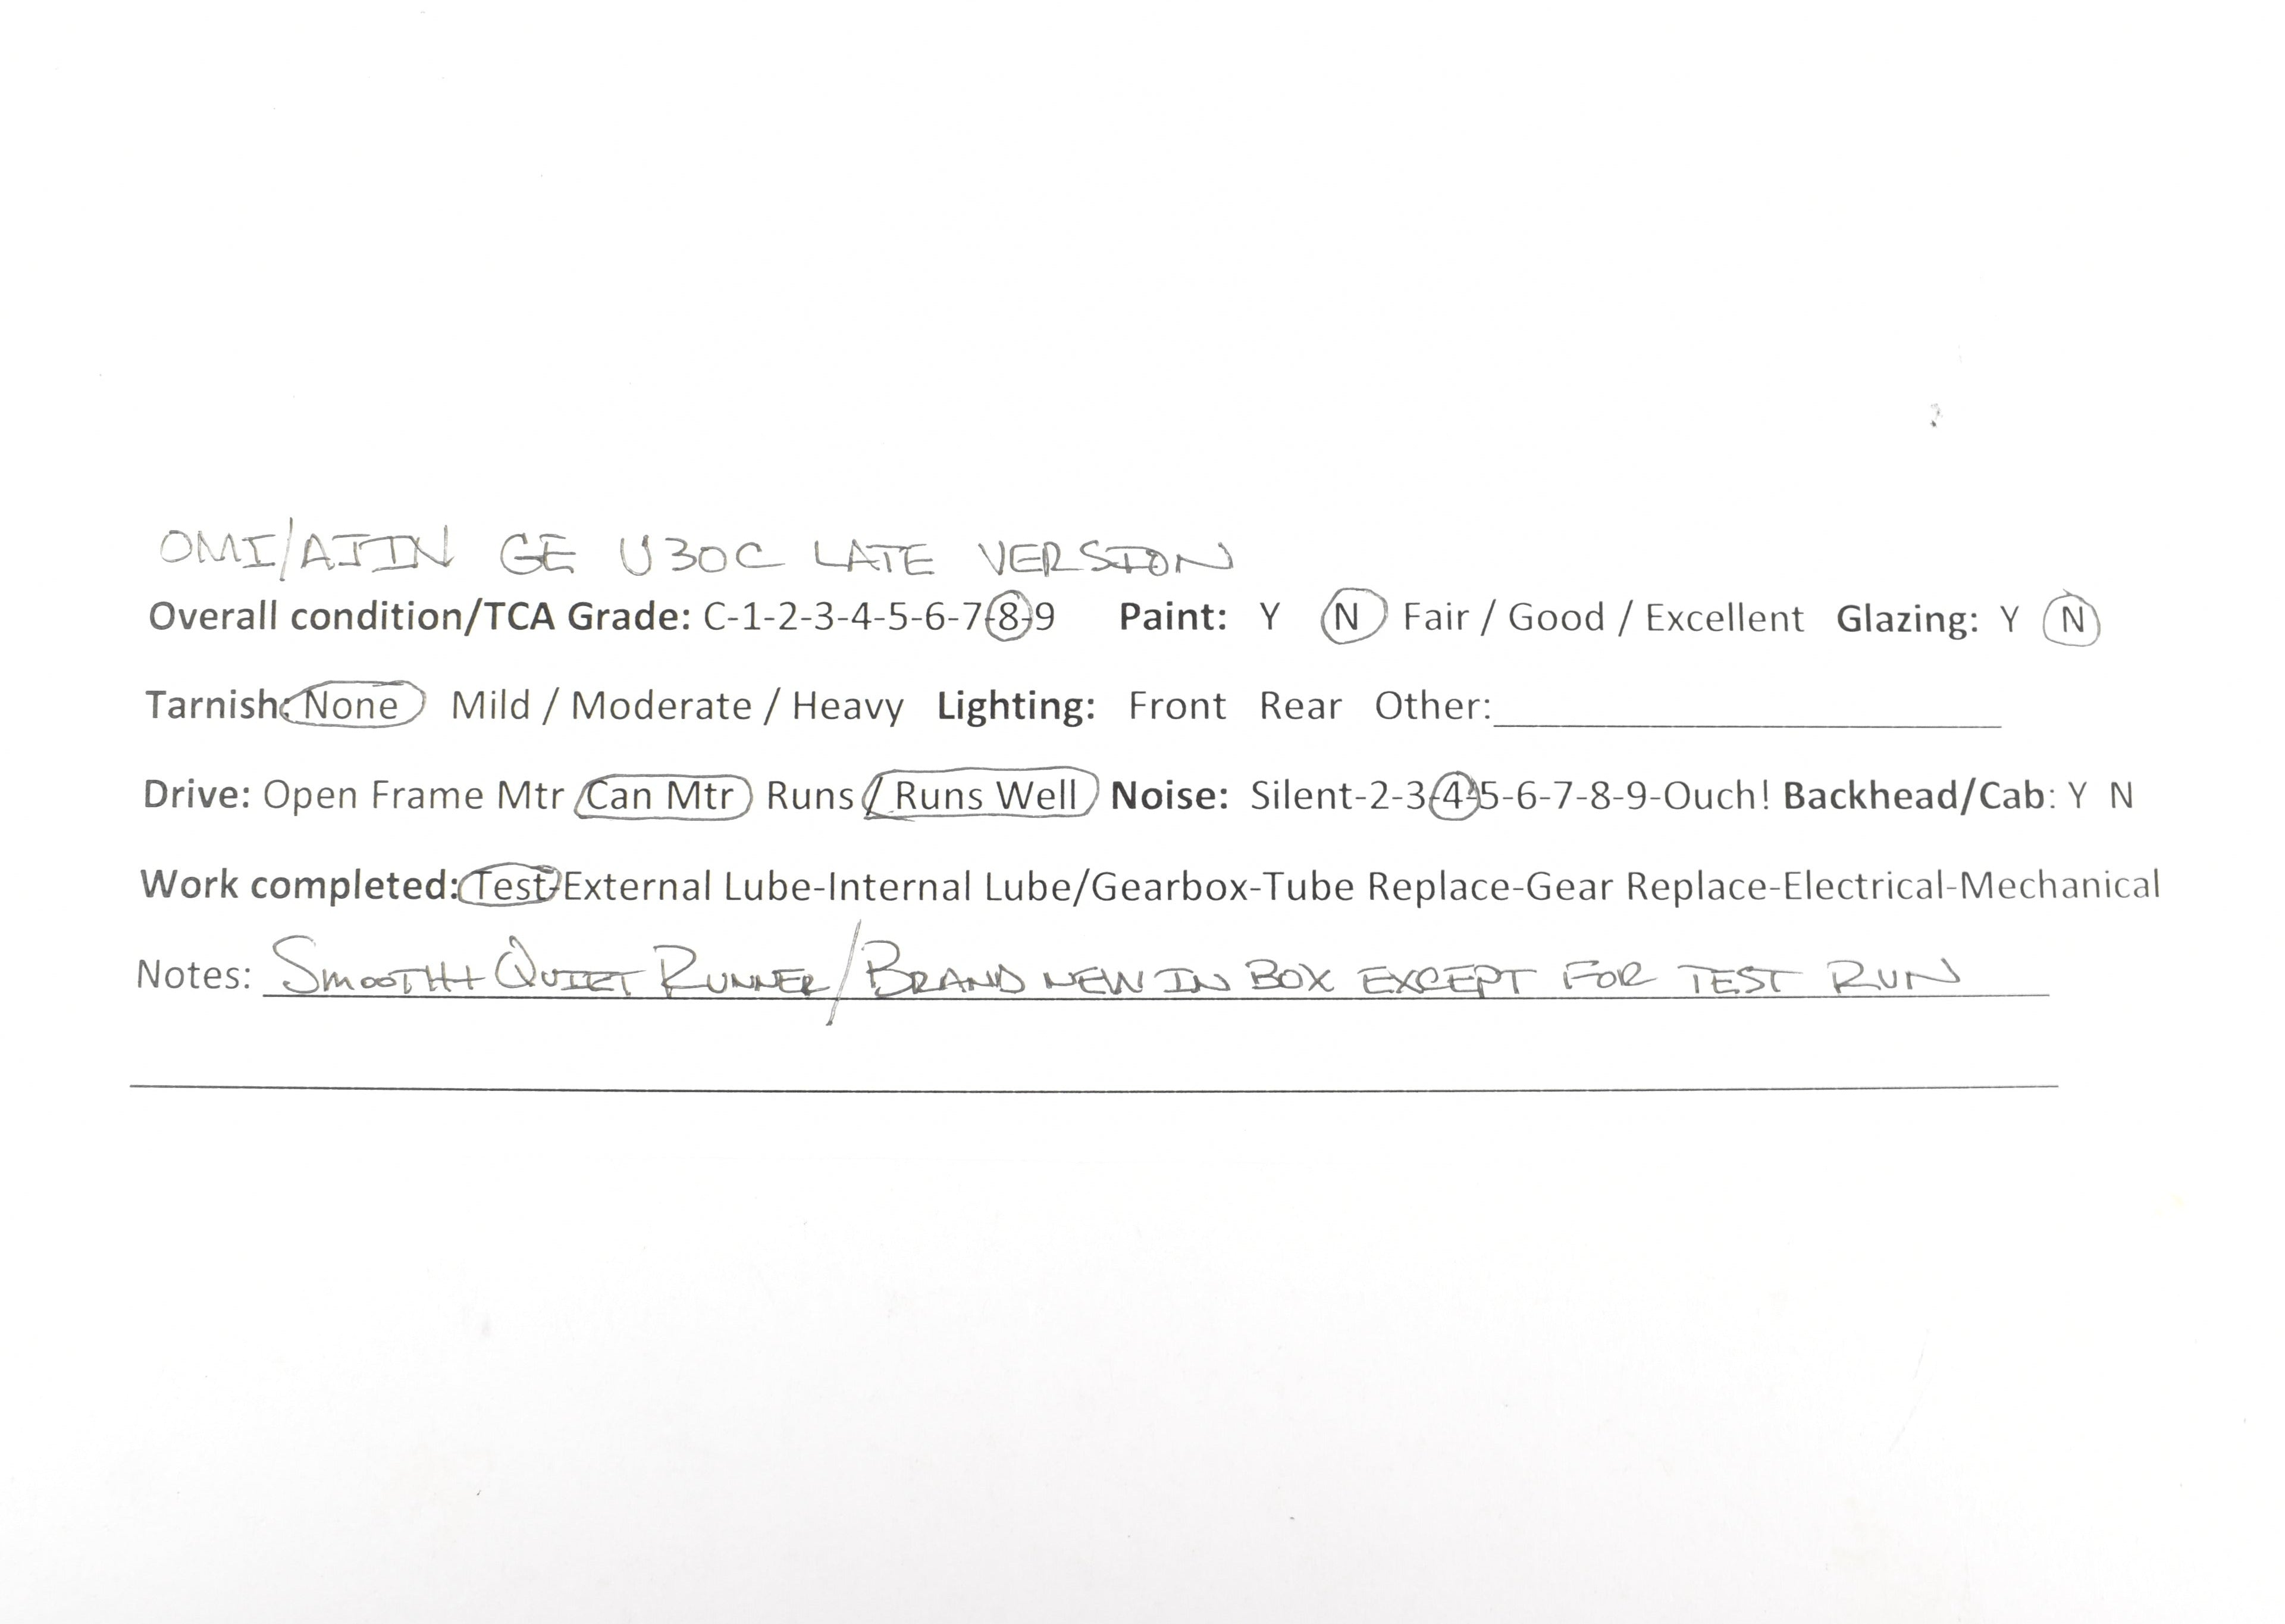 OMI/AJIN GE U30C LATE VERSION
Overall condition/TCA Grade: C-1-2-3-4-5-6-7-8-9 Paint: Y N Fair / Good / Excellent Glazing: Y N
Tarnish: None Mild / Moderate / Heavy Lighting: Front Rear Other:
Drive: Open Frame Mtr Can Mtr Runs / Runs Well Noise: Silent-2-3-4-5-6-7-8-9-Ouch! Backhead/Cab: Y N
Work completed: Test-External Lube-Internal Lube/Gearbox-Tube Replace-Gear Replace-Electrical-Mechanical
Notes: SMOOTH + QUIET RUNNER/BRAND NEW IN BOX EXCEPT FOR TEST RUN